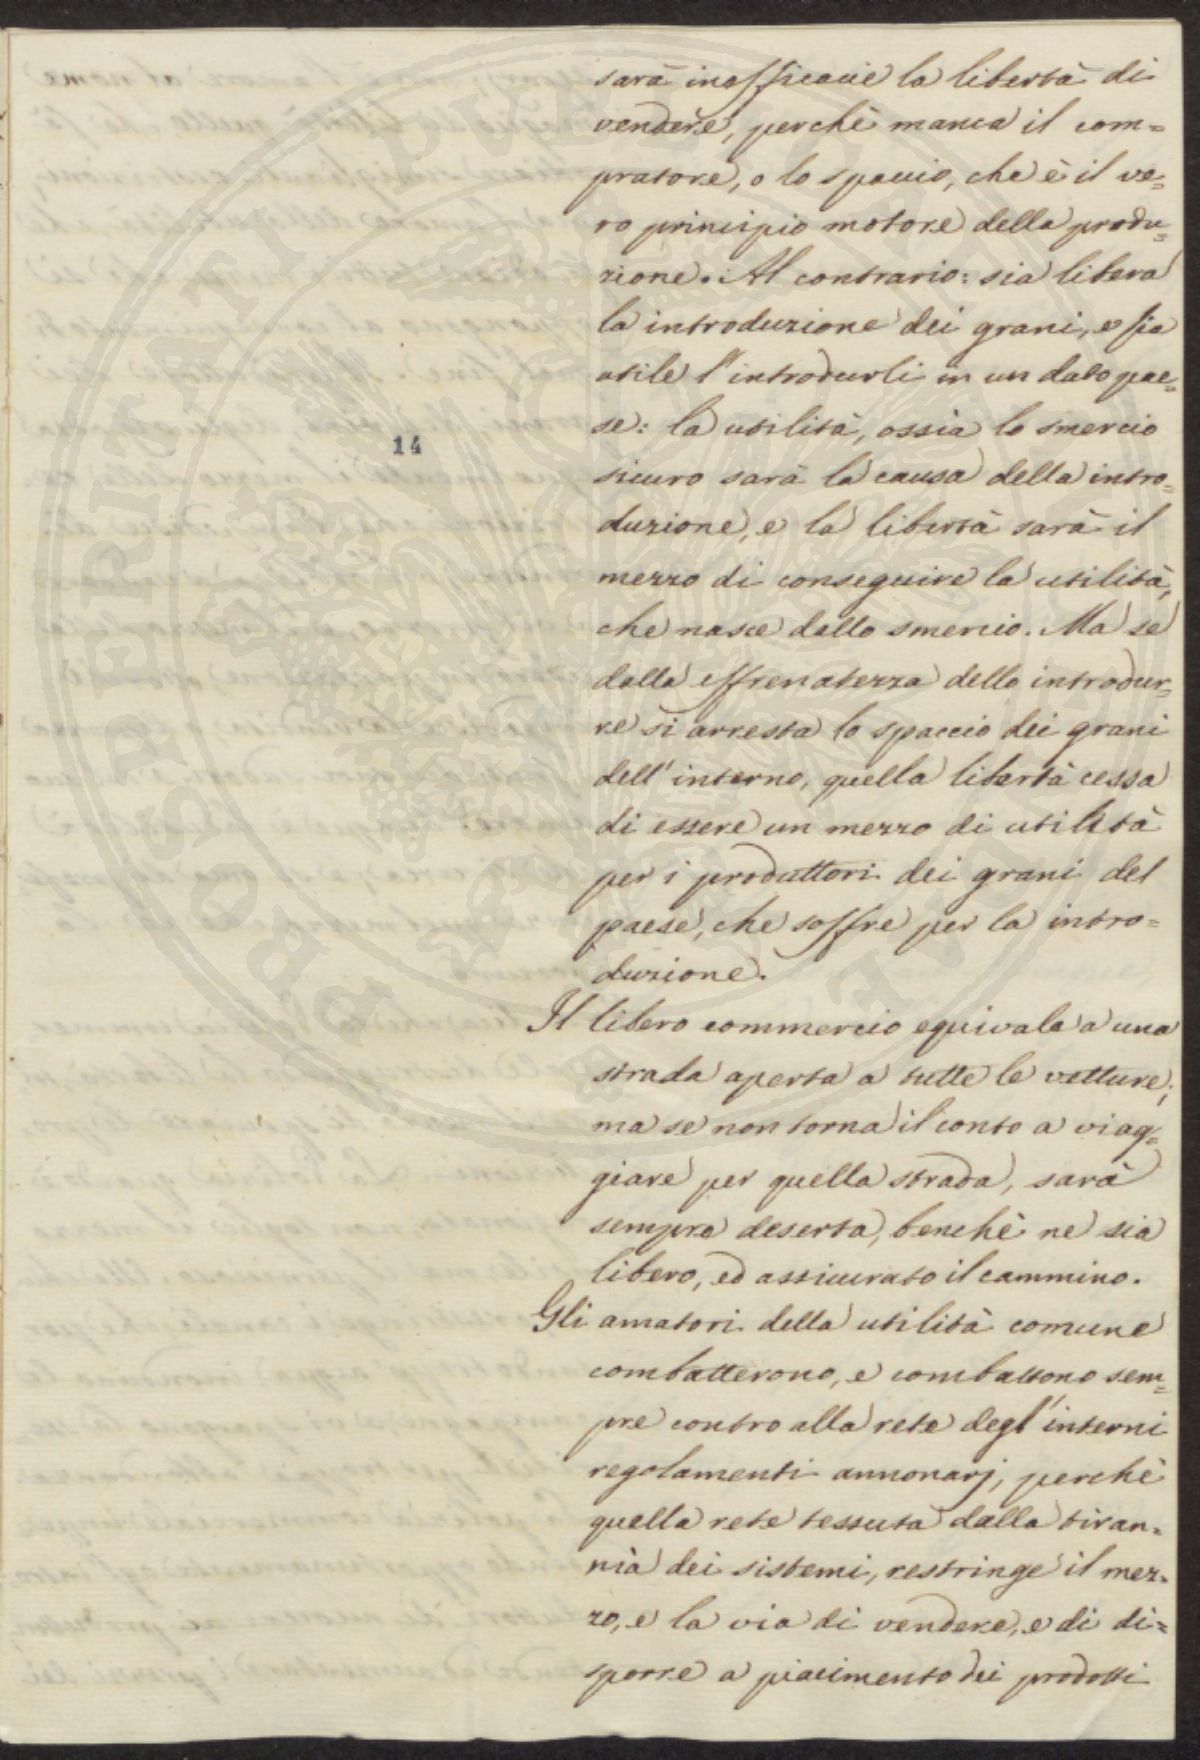 sarà inefficacie la libertà di
vendere, perchè manca il com=
pratore, o lo spaccio, che è il ve=
ro principio motore della produ=
zione. Al contrario: sia libera
la introduzione dei grani, e sia
utile l'introdurli in un dato pae=
se: la utilità, ossia lo smercio
sicuro sarà la causa della intro=
duzione, e la libertà sarà il
mezzo di conseguire la utilità,
che nasce dallo smercio. Ma se
dalla effrenatezza dello introdur=
re si arresta lo spaccio dei grani
dell'interno, quella libertà cessa
di essere un mezzo di utilità
per i produttori dei grani del
paese, che soffre per la intro=
duzione.
14
Il libero commercio equivale a una
strada aperta a tutte le vetture;
ma se non torna il conto a viag=
giare per quella strada, sarà
sempre deserta, benchè ne sia
libero, ed assicurato il cammino.
Gli amatori della utilità comune
combatterono, e combattono sem=
pre contro alla rete degl'interni
regolamenti annonarj, perchè
quella rete tessuta dalla tiran=
nia dei sistemi, restringe il mez=
zo, e la via di vendere, e di di=
sporre a piacimento dei prodotti
PUBLICAE PROSPERITATI